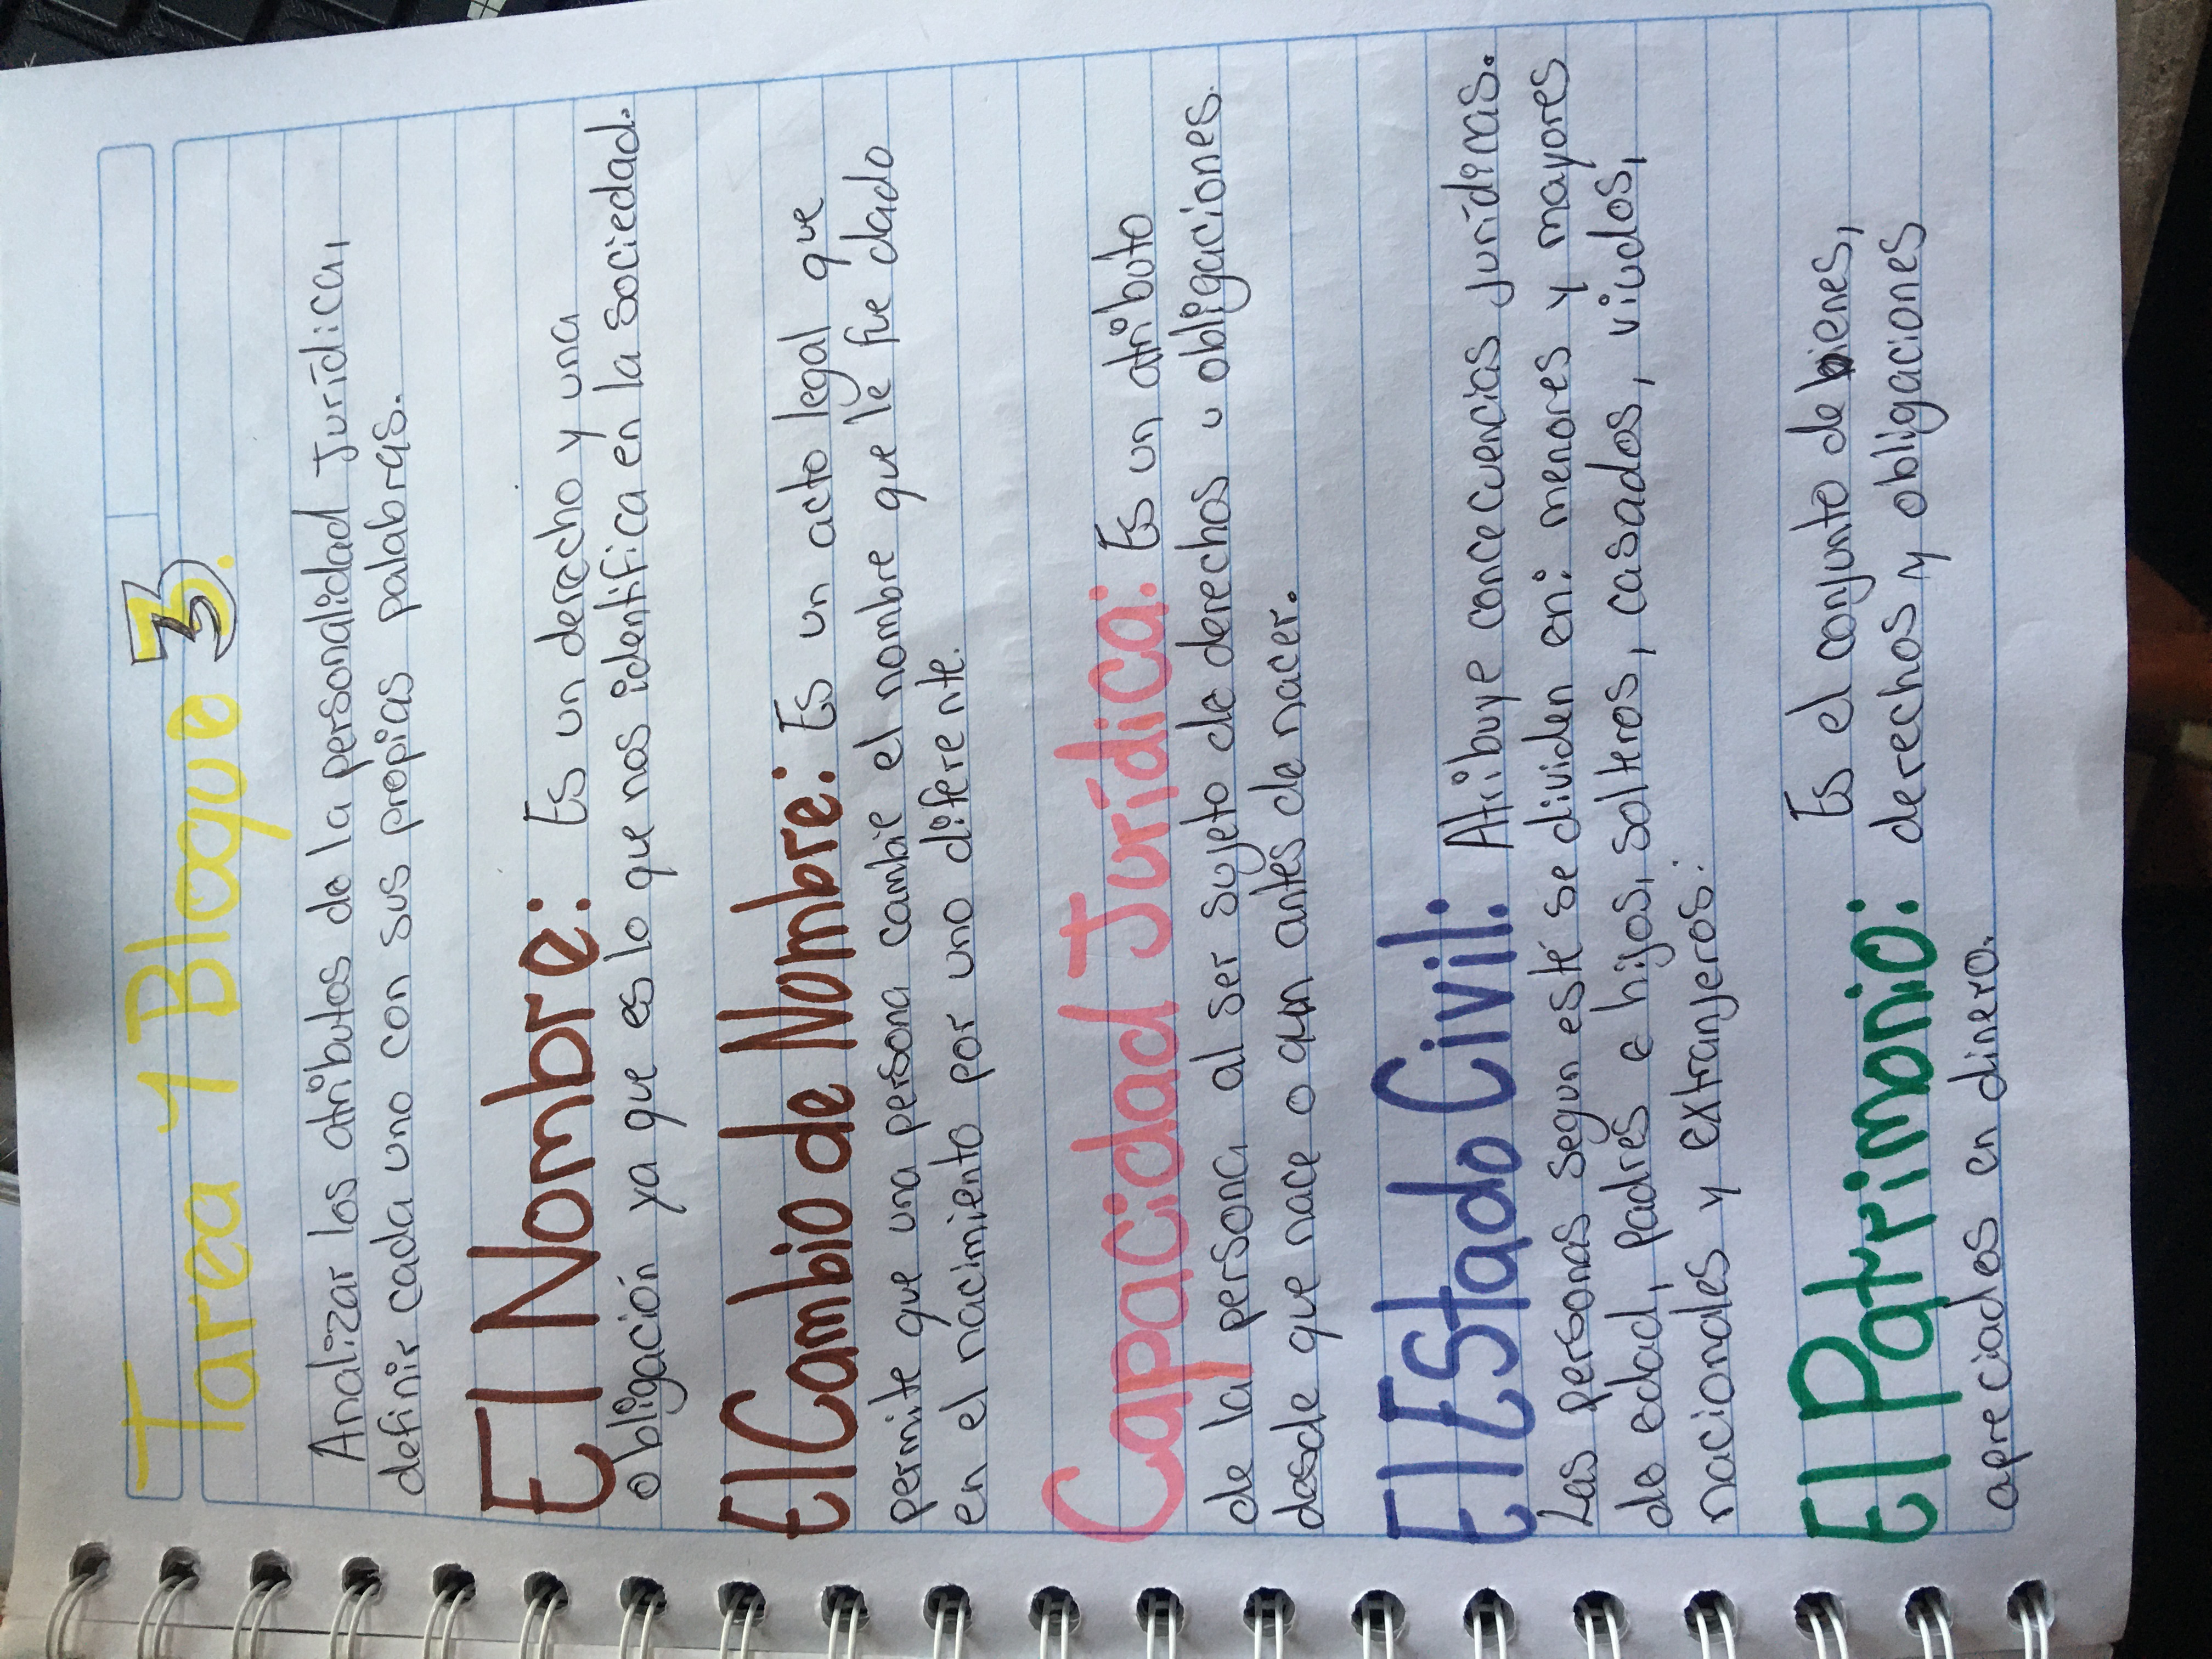 Tarea 1 Bloque 3.
Analizar los atributos de la personalidad Jurídica,
definir cada uno con sus propias palabras.
El Nombre: Es un derecho y una
obligación ya que es lo que nos identifica en la sociedad.
El Cambio de Nombre: Es un acto legal que
permite que una persona cambie el nombre que le fue dado
en el nacimiento por uno diferente.
Capacidad Jurídica: Es un atributo
de la persona al ser sujeto de derechos u obligaciones.
desde que nace o aun antes de nacer.
El Estado Civil: Atribuye concecuencias jurídicas.
Las personas segun esté se dividen en: menores y mayores
de edad, padres e hijos, solteros, casados, viudos,
nacionales y extranjeros.
El Patrimonio: Es el conjunto de bienes,
derechos y obligaciones
apreciados en dinero.